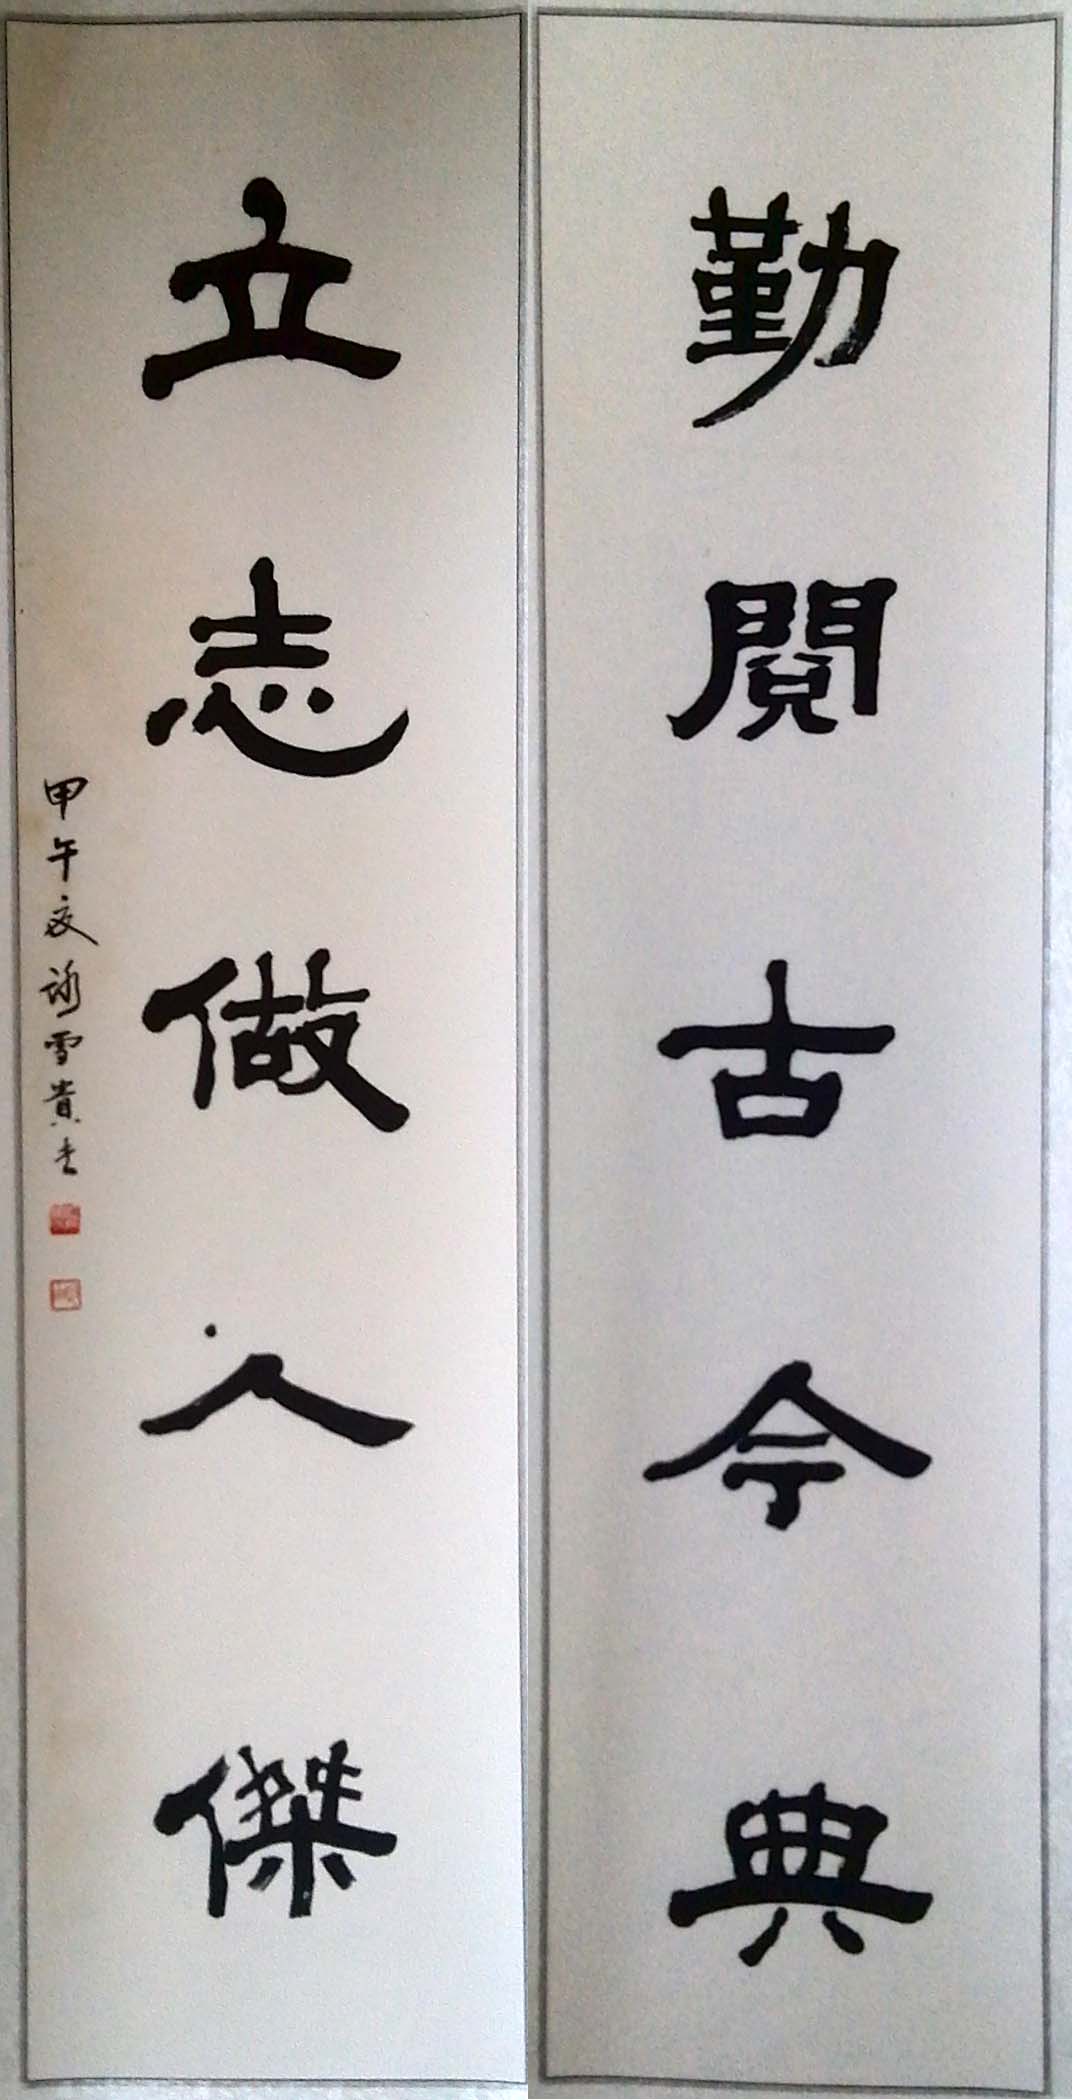 勤閱古今典
立志做人傑
甲午夏 謝雪貴書